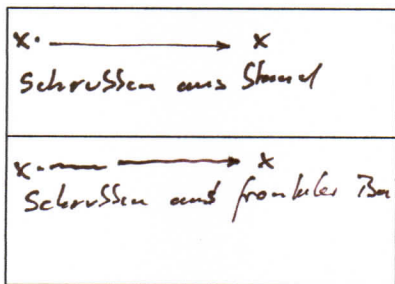 x · → x
Schrussen aus Stand
x · → x
Schrussen aus frontaler